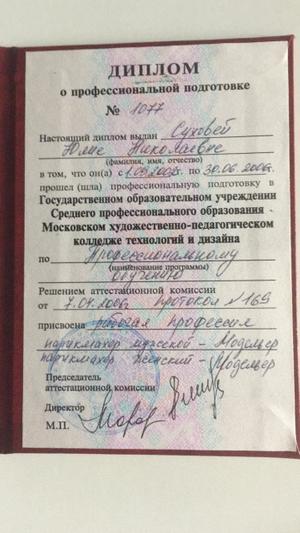 ДИПЛОМ
о профессиональной подготовке
№ 1077
Настоящий диплом выдан Суховей
Юлие Николаевне
(фамилия, имя, отчество)
в том, что он(а) с по 30.06.2006г.
прошел (шла) профессиональную подготовку в
Государственном образовательном учреждении
Среднего профессионального образования -
Московском художественно-педагогическом
колледже технологий и дизайна
по Профессиональному
(наименование программы)
обучению
Решением аттестационной комиссии
от 7.04.2006г. протокол №169
присвоена рабочая профессия
парикмахер мужской - Модельер
парикмахер женский - Модельер
Председатель
аттестационной комиссии
Директор
М.П.